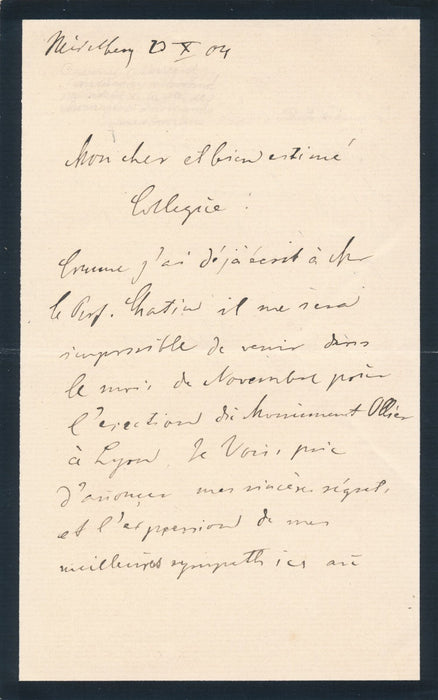 Heidelberg X 04
Mon cher et bien estimé
Collegue!
Comme j'ai déjà écrit à Mr
le Prof. il me sera
impossible de venir dans
le mois de Novembre pour
l'erection du Monument Ollier
à Lyon. Je Vous prie
d'anoncer mes sincères régrets
et l'expression de mes
meilleures sympathies au